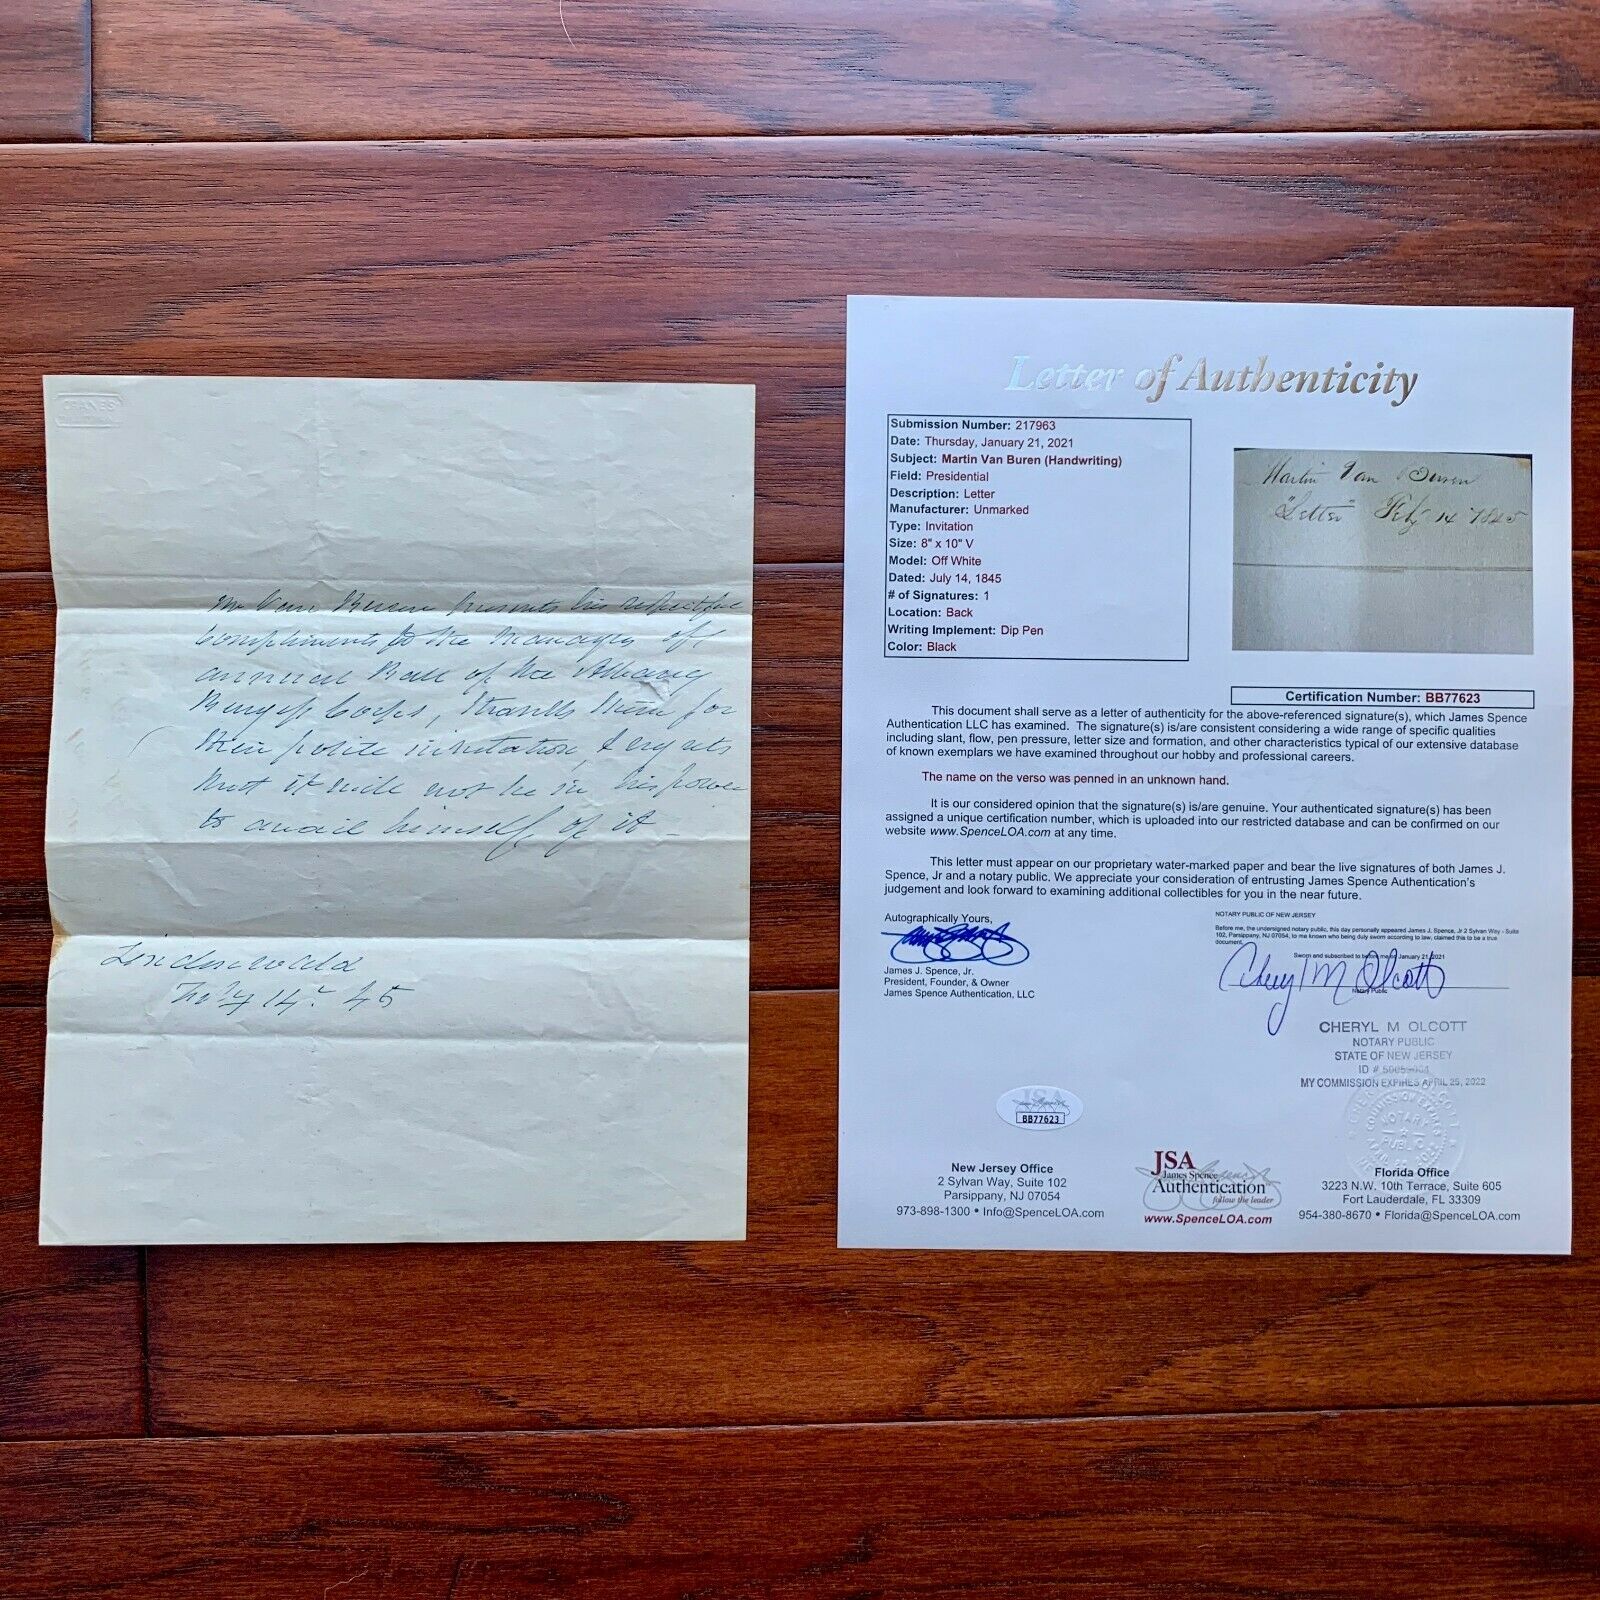 CRANES
Mr Van Buren presents his respectful
compliments to the Managers of
annual Ball of the Albany
Burgess Corps, thanks them for
their polite invitation, & regrets
that it will not be in his power
to avail himself of it
Lindenwald
Feby 14. 45
Letter of Authenticity
Submission Number: 217963
Date: Thursday, January 21, 2021
Subject: Martin Van Buren (Handwriting)
Field: Presidential
Description: Letter
Manufacturer: Unmarked
Type: Invitation
Size: 8" x 10" V
Model: Off White
Dated: July 14, 1845
# of Signatures: 1
Location: Back
Writing Implement: Dip Pen
Color: Black
Martin Van Buren
"Letter" Feby 14 1845
Certification Number: BB77623
This document shall serve as a letter of authenticity for the above-referenced signature(s), which James Spence
Authentication LLC has examined. The signature(s) is/are consistent considering a wide range of specific qualities
including slant, flow, pen pressure, letter size and formation, and other characteristics typical of our extensive database
of known exemplars we have examined throughout our hobby and professional careers.
The name on the verso was penned in an unknown hand.
It is our considered opinion that the signature(s) is/are genuine. Your authenticated signature(s) has been
assigned a unique certification number, which is uploaded into our restricted database and can be confirmed on our
website www.SpenceLOA.com at any time.
This letter must appear on our proprietary water-marked paper and bear the live signatures of both James J.
Spence, Jr and a notary public. We appreciate your consideration of entrusting James Spence Authentication's
judgement and look forward to examining additional collectibles for you in the near future.
Autographically Yours,
James J. Spence, Jr.
President, Founder, & Owner
James Spence Authentication, LLC
NOTARY PUBLIC OF NEW JERSEY
Before me, the undersigned notary public, this day personally appeared James J. Spence, Jr 2 Sylvan Way - Suite
102, Parsippany, NJ 07054, to me known who being duly sworn according to law, claimed this to be a true
document.
Sworn and subscribed to before me on January 21, 2021
Cheryl M Olcott
Notary Public
CHERYL M OLCOTT
NOTARY PUBLIC
STATE OF NEW JERSEY
ID #
MY COMMISSION EXPIRES APRIL 25, 2022
JSA
BB77623
New Jersey Office
2 Sylvan Way, Suite 102
Parsippany, NJ 07054
973-898-1300 • Info@SpenceLOA.com
JSA
James Spence
Authentication
follow the leader
www.SpenceLOA.com
Florida Office
3223 N.W. 10th Terrace, Suite 605
Fort Lauderdale, FL 33309
954-380-8670 • Florida@SpenceLOA.com